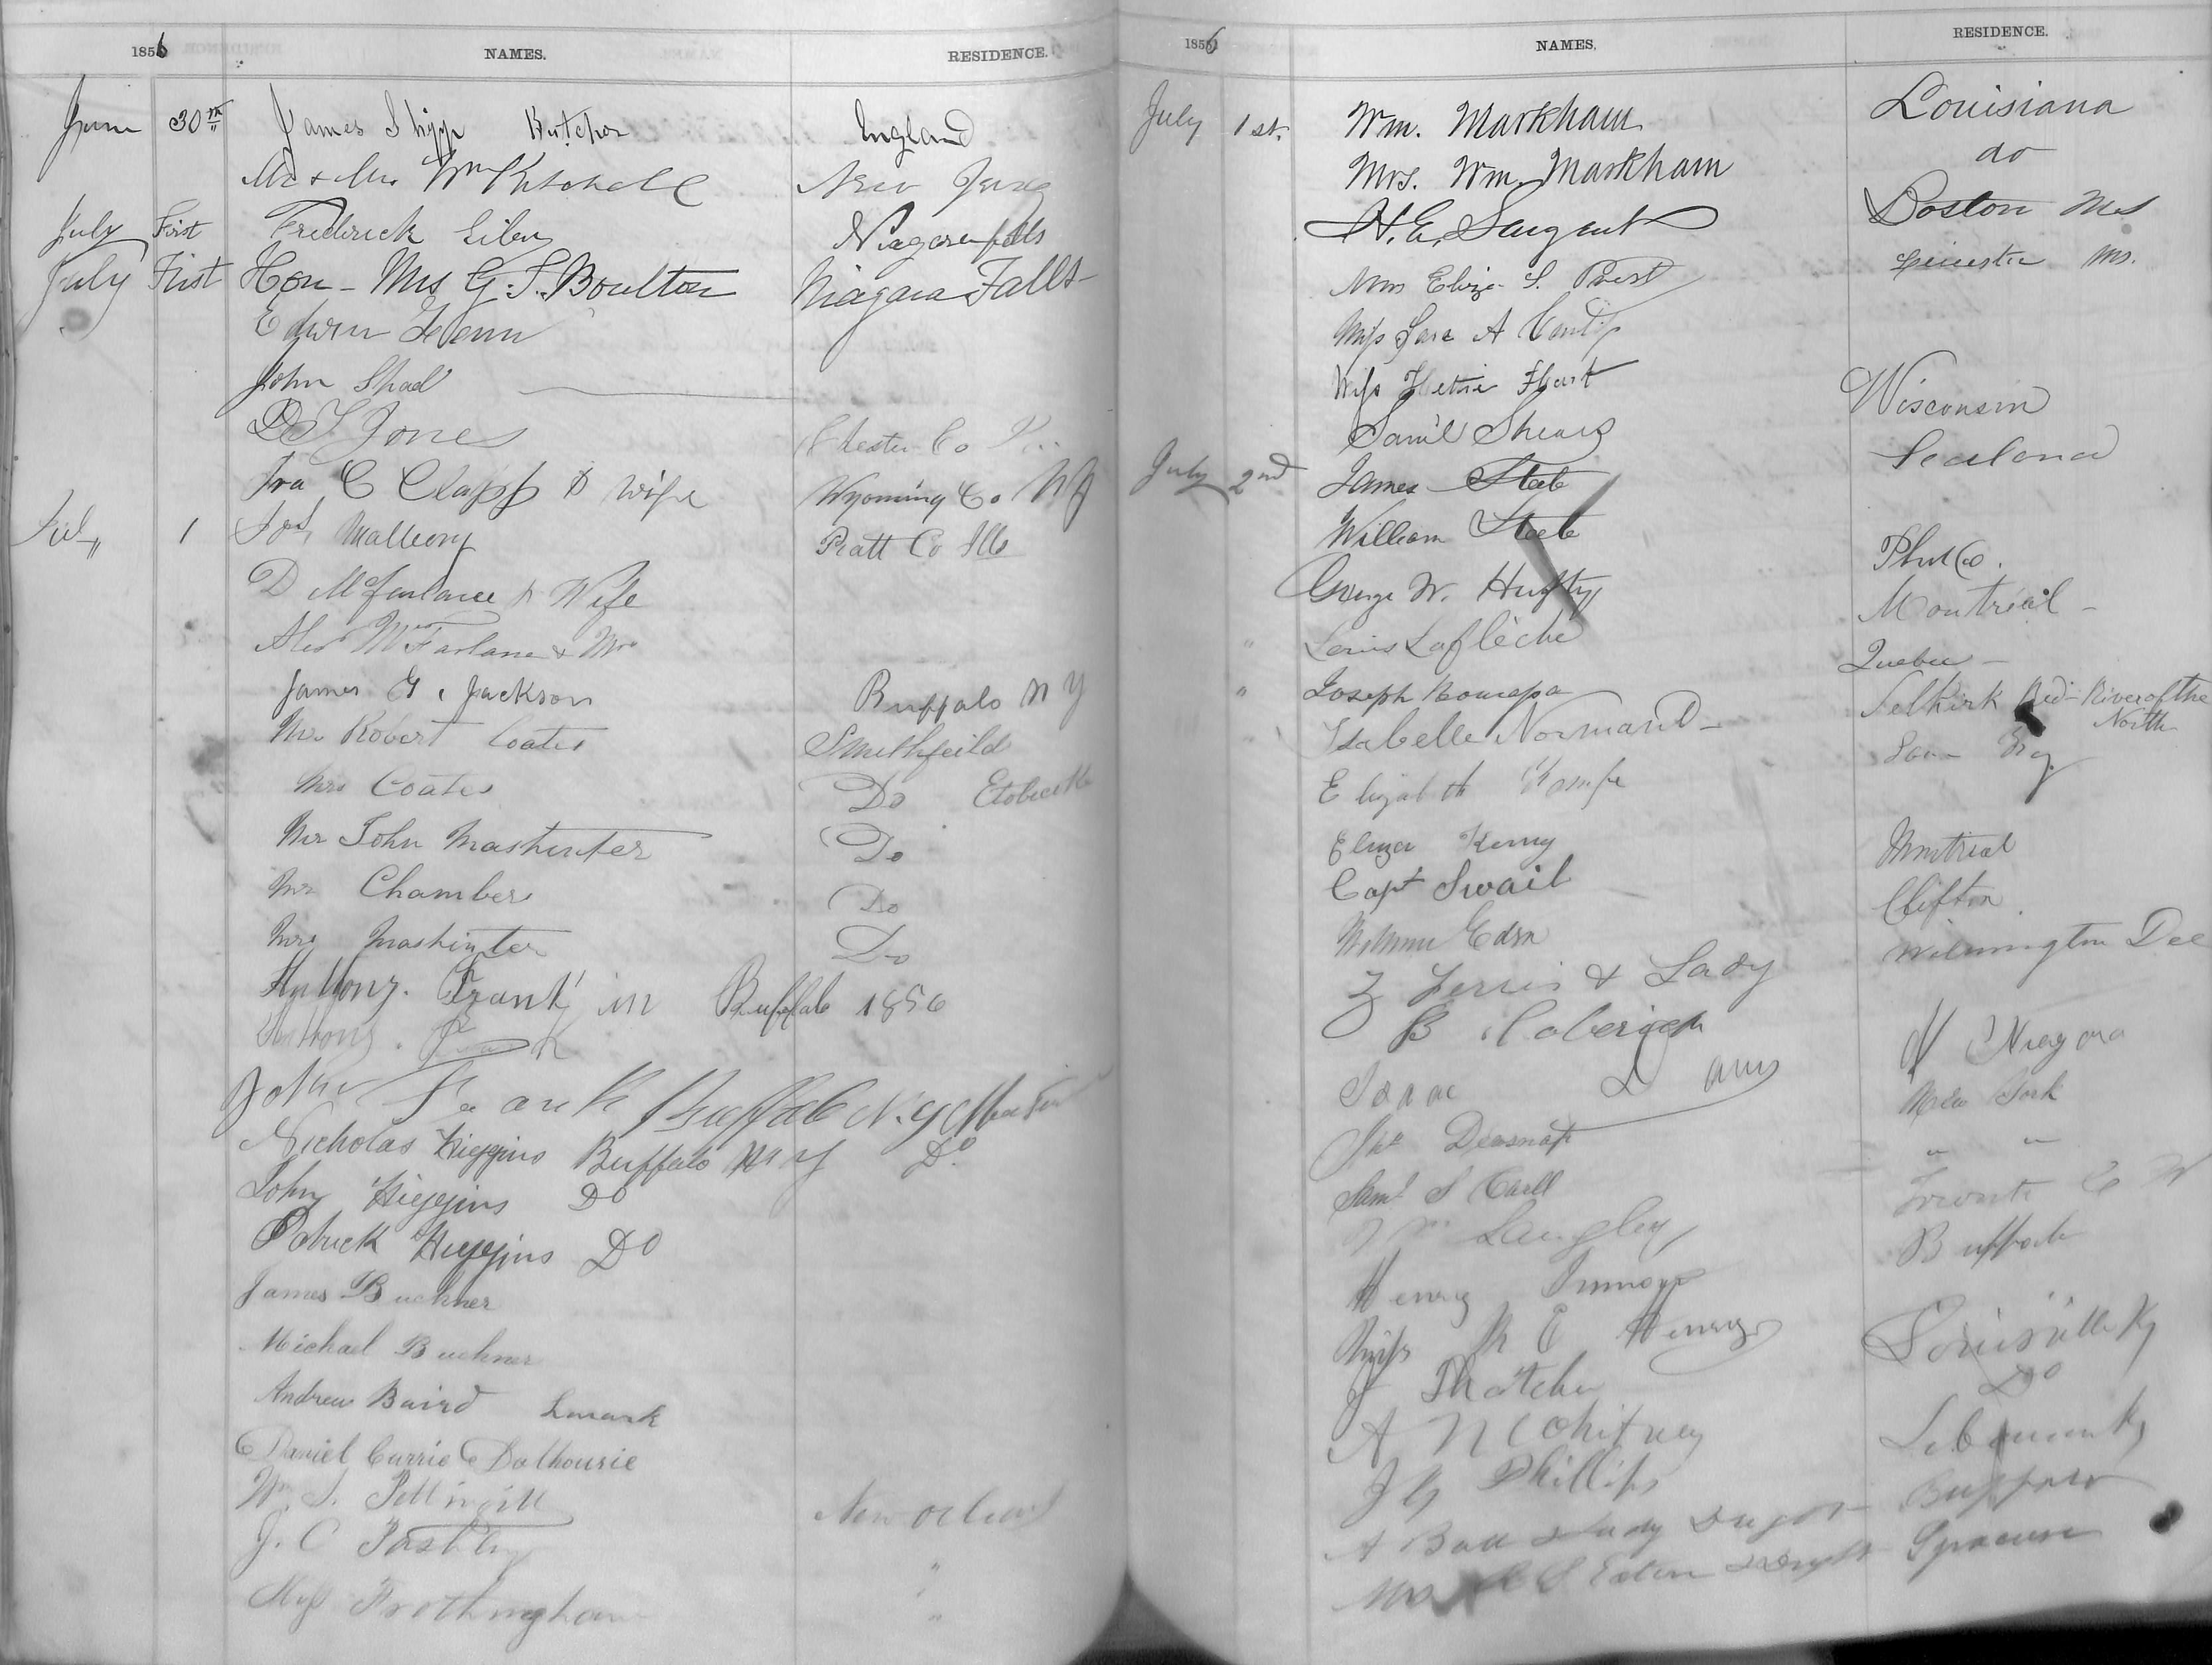 1856 NAMES. RESIDENCE.
June 30th James Shipp Butcher England
Mr & Mrs Wm Kitchell New Jersey
July First Frederick Niagara falls
July First Hon - Mrs G. S. Boulton Niagara Falls
Edwin Glenn
John Shad
D T Jones Chester Co
Ira C Clapp & Wife Wyoming Co NY
July 1 Mallory Piatt Co Ills
D McFarlane & Wife
Alex McFarlane & Mrs
James G. Jackson Buffalo N Y
Mr Robert Coates Smithfeild
Mrs Coates Do Etobicoke
Mr John Mashinter Do
Mr Chambers Do
Mrs Mashinter Do
Anthony. Frank in Buffalo 1856
Anthony. Frank
John Frank Buffalo N.Y
Nicholas Higgins Buffalo N Y Do
John Higgins Do
Patrick Higgins Do
James Buchner
Michael Buchner
Andrew Baird Lanark
Daniel Currie Dalhousie
Wm. S. Pettingill New Orleans
J. C "
Miss Frothingham "
1856 NAMES. RESIDENCE.
July 1st. Wm. Markham Louisiana
Mrs. Wm. Markham do
H. E. Sargent Boston Ms
Mrs Eliza S. Leicester Ms.
Miss A
Miss Hettie Hart
Sam'l Shears Wisconsin
July 2nd James Steele Scotland
William Steele
George W. Hufty Phil
" Louis Lafléche Montréal -
" Joseph Quebec -
" Isabelle Normand - Selkirk Red River of the North
Elizabeth
Eliza Kenny
Capt Swail Montreal
William Edson Clifton
Z Ferris & Lady Wilmington Del
B
Isaac Davis N Niagara
Jno New York
Saml S Carll " "
Langley Toronto C W
Henry Buffalo
Miss R E Henry
J Thatcher Louisville Ky
A N Whitney Do
J G Phillips
A Ball & Lady Buffalo
Mrs S Eaton Syracuse